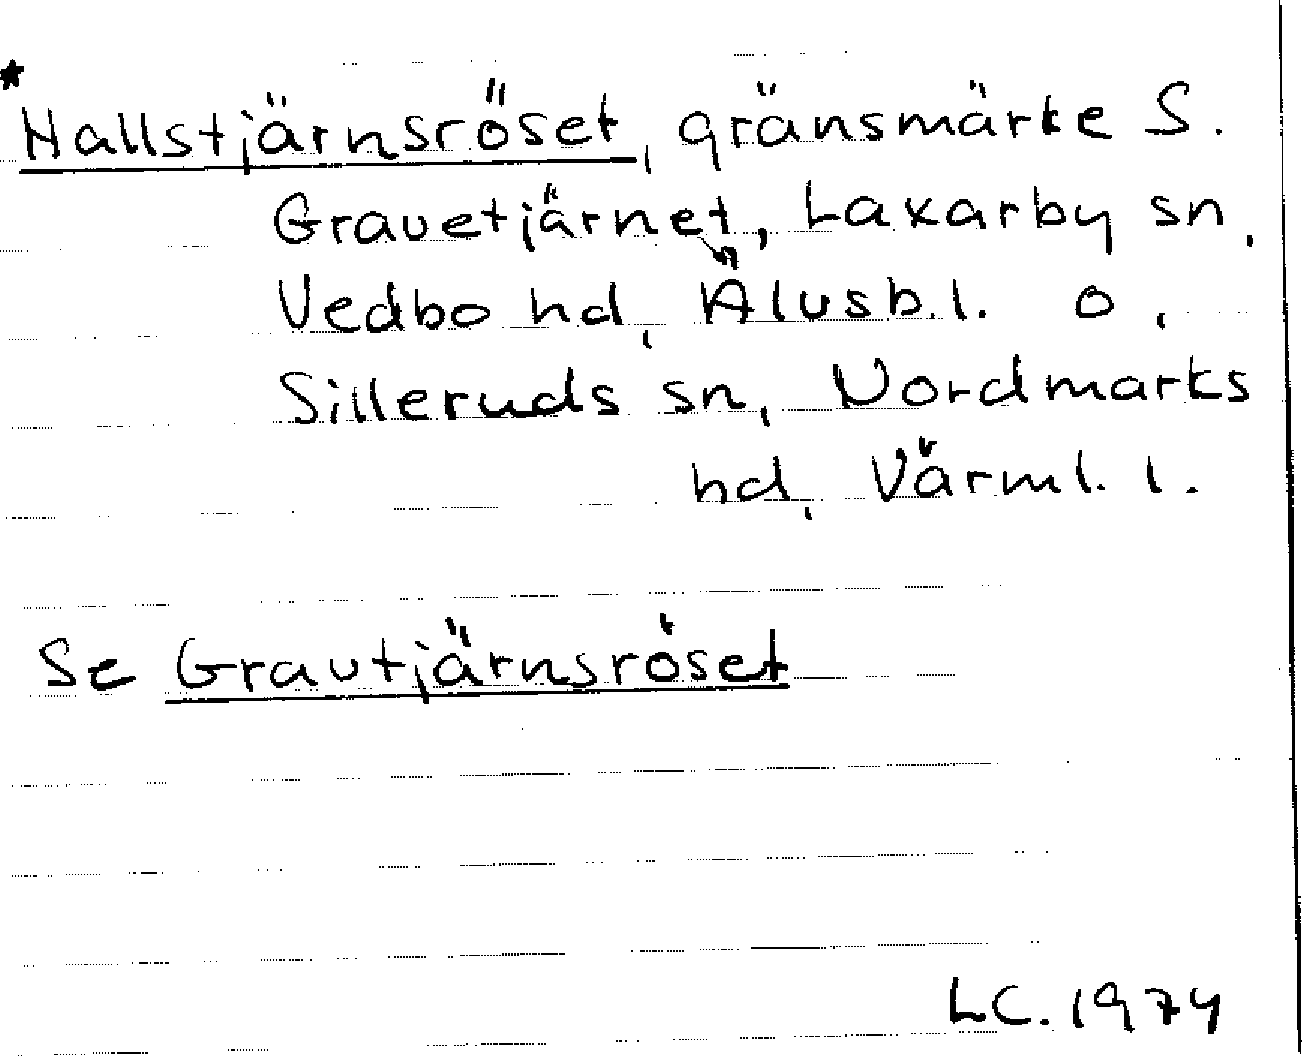 *Hallstjärnsröset, gränsmärke S.
Gravetjärnet, Laxarby sn,
Vedbo hd, Älvsb.l. o,
Silleruds sn, Nordmarks
hd, Värml. l.
Se Gravtjärnsröset
LC. 1974